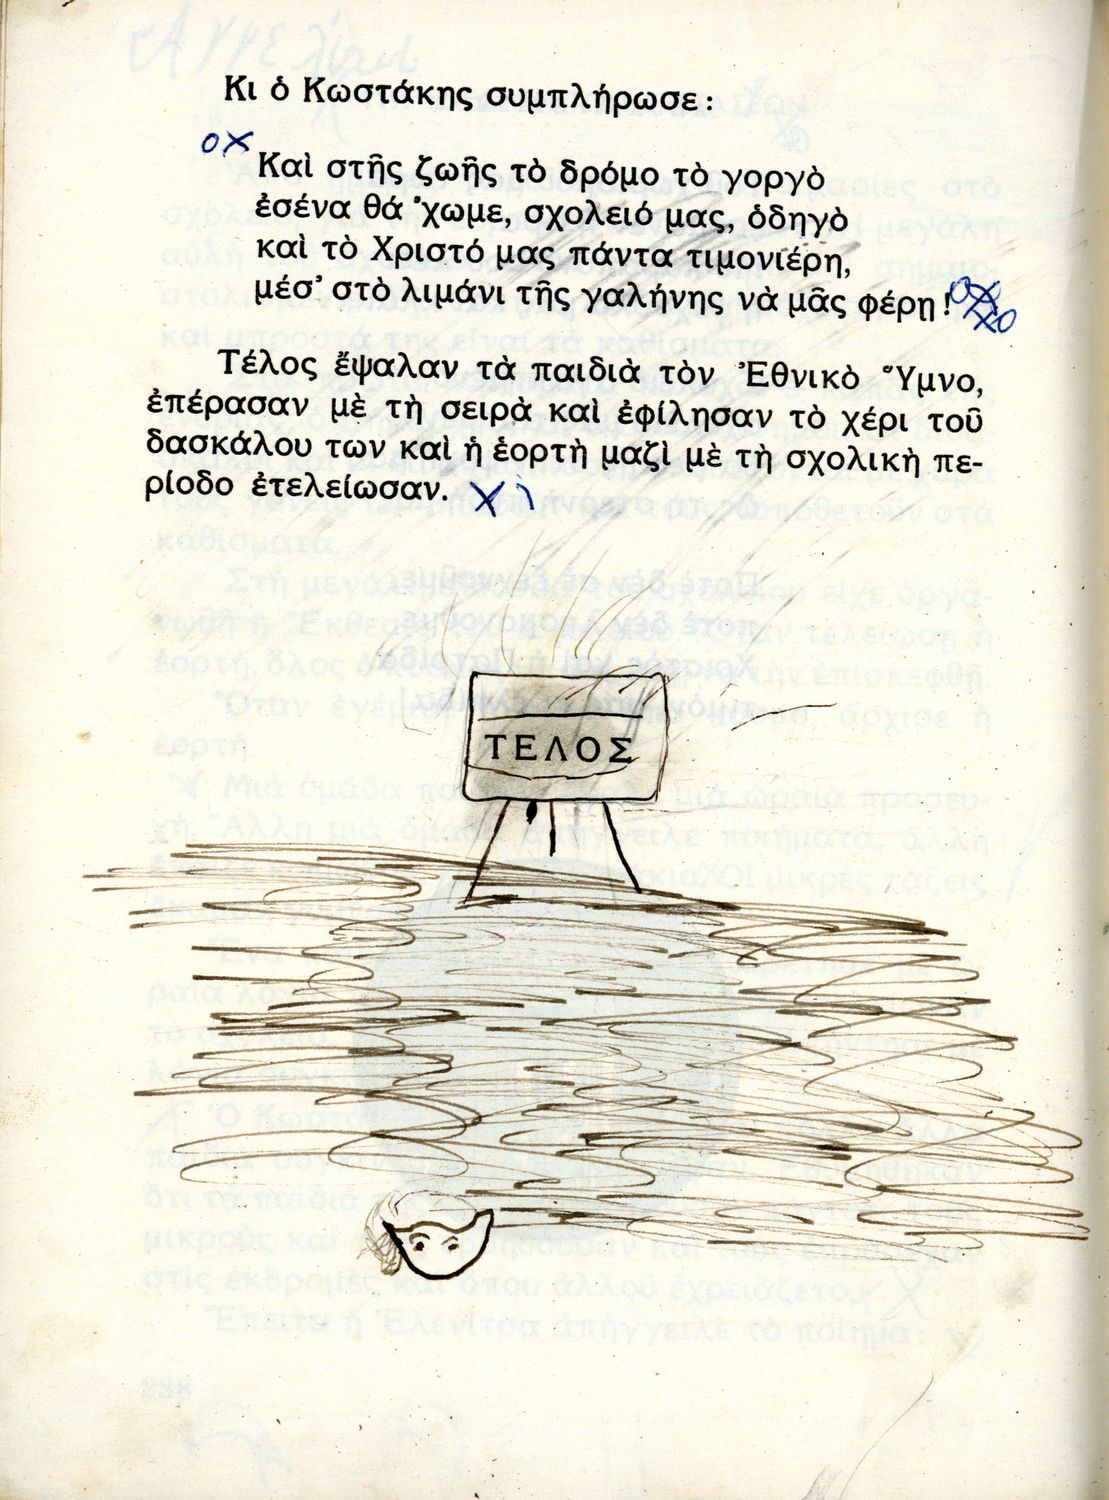 Κι ὁ Κωστάκης συμπλήρωσε:
οχ
Καὶ στῆς ζωῆς τὸ δρόμο τὸ γοργὸ
ἐσένα θά ’χωμε, σχολειό μας, ὁδηγὸ
καὶ τὸ Χριστό μας πάντα τιμονιέρη,
μέσ’ στὸ λιμάνι τῆς γαλήνης νὰ μᾶς φέρῃ!
Τέλος ἔψαλαν τὰ παιδιὰ τὸν Ἐθνικὸ Ὕμνο,
ἐπέρασαν μὲ τὴ σειρὰ καὶ ἐφίλησαν τὸ χέρι τοῦ
δασκάλου των καὶ ἡ ἑορτὴ μαζὶ μὲ τὴ σχολικὴ πε-
ρίοδο ἐτελείωσαν.
ΤΕΛΟΣ